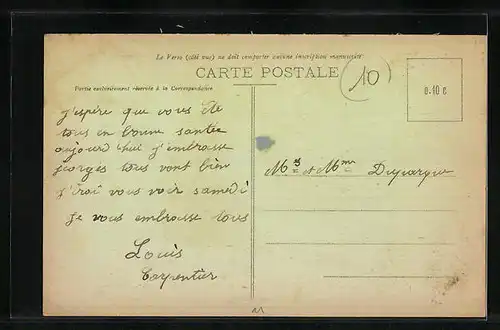 Le Verso (côté vue) ne doit comporter aucune inscription manuscrite
CARTE POSTALE
10
0.10 c
Partie exclusivement réservée à la Correspondance
J'espère que vous été
tous en bonne santée
aujourd'hui j'embrasse
georges tous vont bien
J'irai vous voir samedi
je vous embrasse tous
Louis
Carpentier
Mrs et Mme Duparque